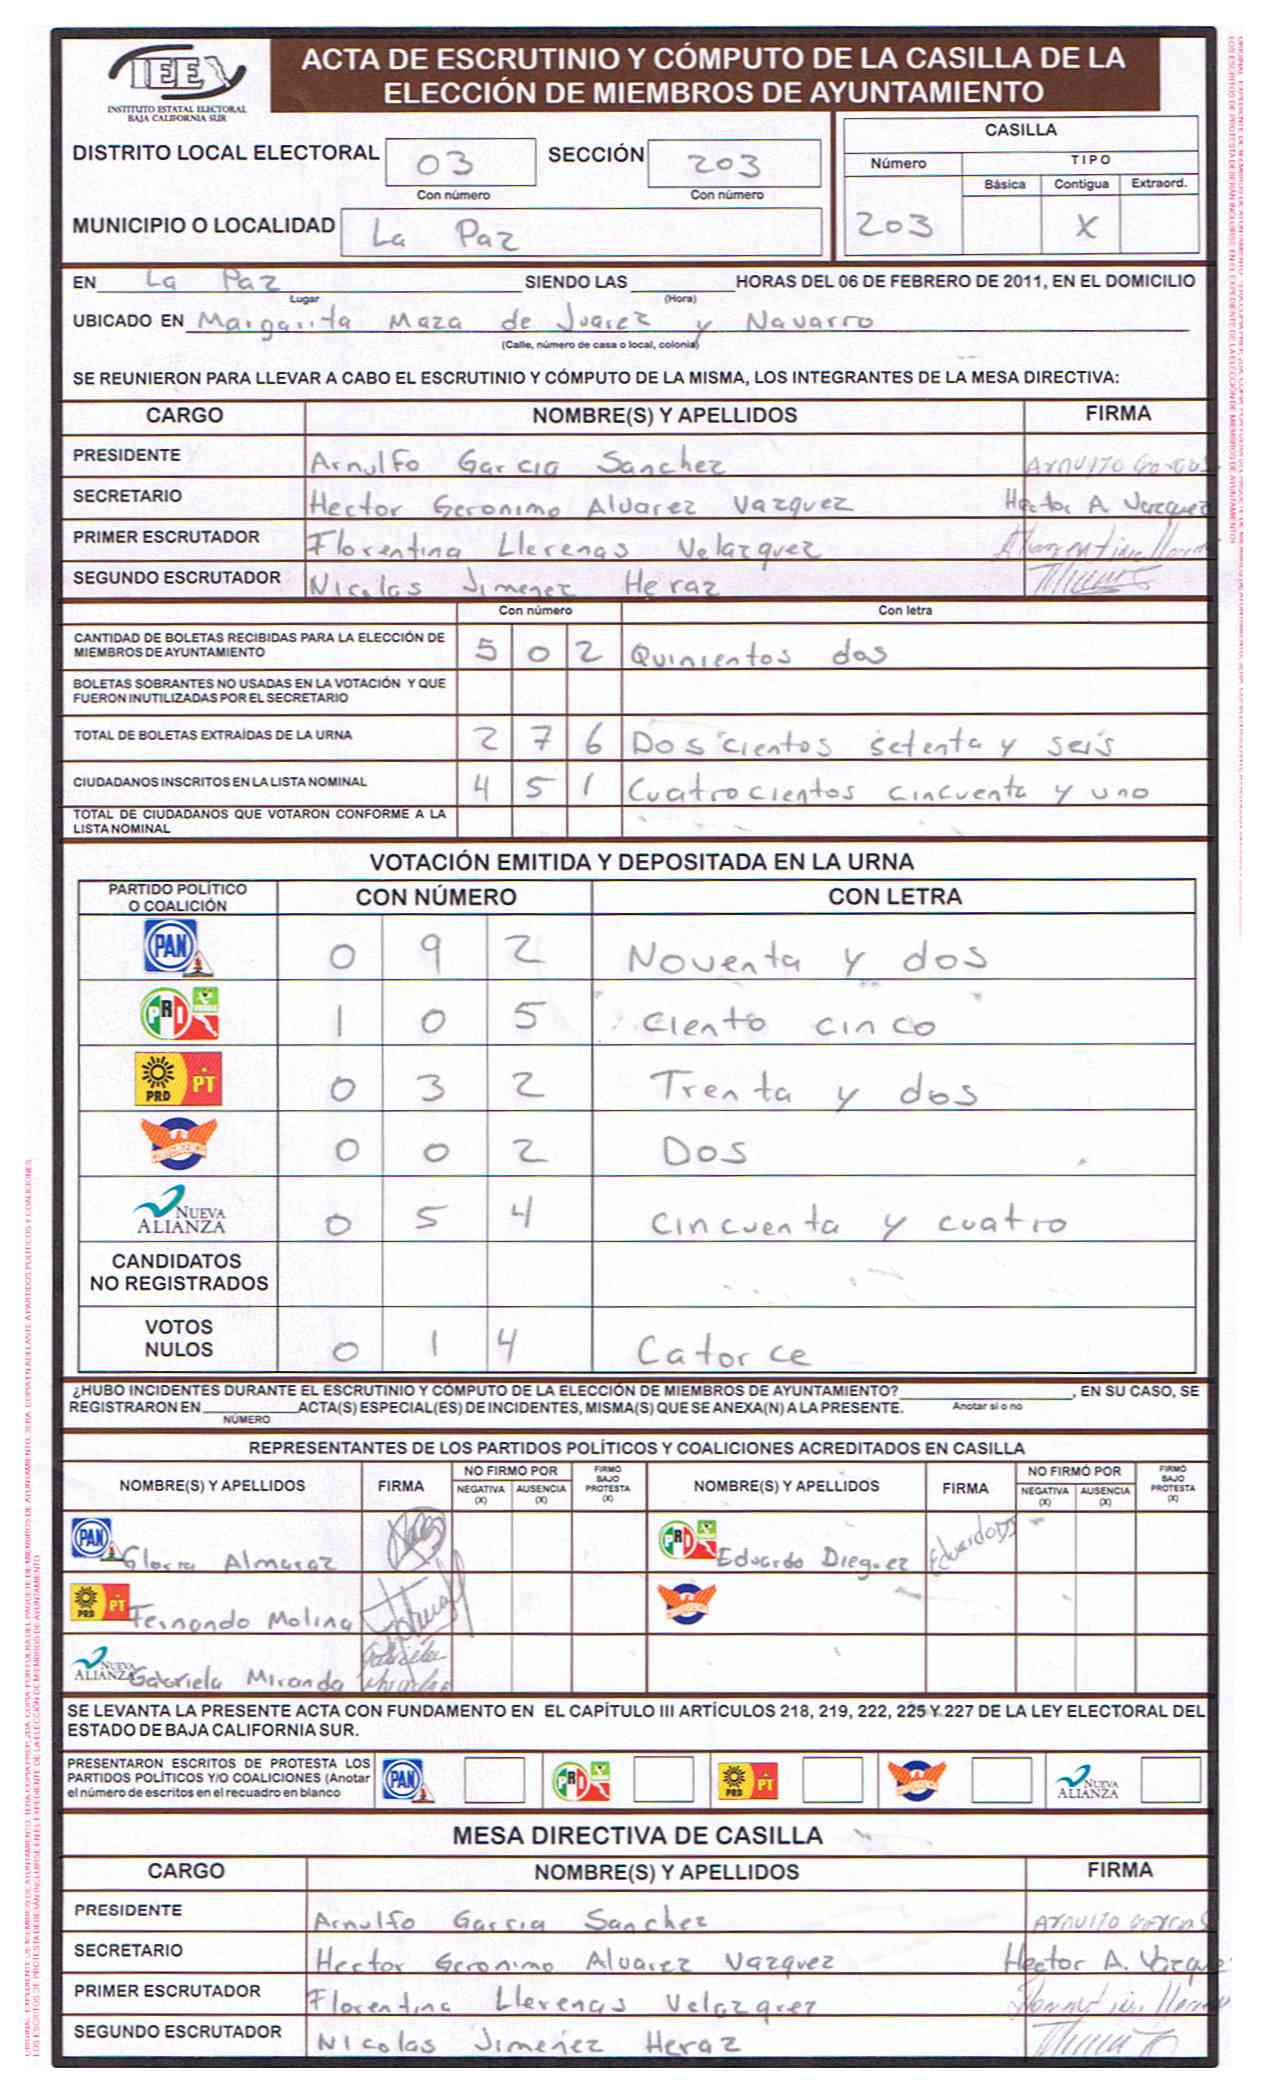 IEEX
INSTITUTO ESTATAL ELECTORAL
BAJA CALIFORNIA SUR
ACTA DE ESCRUTINIO Y CÓMPUTO DE LA CASILLA DE LA
ELECCIÓN DE MIEMBROS DE AYUNTAMIENTO
DISTRITO LOCAL ELECTORAL 03 SECCIÓN 203
Con número Con número
MUNICIPIO O LOCALIDAD La Paz
CASILLA
Número TIPO
Básica Contigua Extraord.
203 X
EN La Paz SIENDO LAS HORAS DEL 06 DE FEBRERO DE 2011, EN EL DOMICILIO
Lugar (Hora)
UBICADO EN Margarita Maza de Juarez y Navarro
(Calle, número de casa o local, colonia)
SE REUNIERON PARA LLEVAR A CABO EL ESCRUTINIO Y CÓMPUTO DE LA MISMA, LOS INTEGRANTES DE LA MESA DIRECTIVA:
CARGO NOMBRE(S) Y APELLIDOS FIRMA
PRESIDENTE Arnulfo Garcia Sanchez
SECRETARIO Hector Geronimo Alvarez Vazquez Hector A. Vazquez
PRIMER ESCRUTADOR Florentina Llerenas Velazquez
SEGUNDO ESCRUTADOR Nicolas Jimenez Heraz
Con número Con letra
CANTIDAD DE BOLETAS RECIBIDAS PARA LA ELECCIÓN DE
MIEMBROS DE AYUNTAMIENTO 5 0 2 Quinientos dos
BOLETAS SOBRANTES NO USADAS EN LA VOTACIÓN Y QUE
FUERON INUTILIZADAS POR EL SECRETARIO
TOTAL DE BOLETAS EXTRAÍDAS DE LA URNA 2 7 6 Dos cientos setenta y seis
CIUDADANOS INSCRITOS EN LA LISTA NOMINAL 4 5 1 Cuatrocientos cincuenta y uno
TOTAL DE CIUDADANOS QUE VOTARON CONFORME A LA
LISTA NOMINAL
VOTACIÓN EMITIDA Y DEPOSITADA EN LA URNA
PARTIDO POLÍTICO
O COALICIÓN CON NÚMERO CON LETRA
PAN 0 9 2 Noventa y dos
PRI VERDE 1 0 5 Ciento cinco
PRD PT 0 3 2 Trenta y dos
CONVERGENCIA 0 0 2 Dos
NUEVA
ALIANZA 0 5 4 Cincuenta y cuatro
CANDIDATOS
NO REGISTRADOS
VOTOS
NULOS 0 1 4 Catorce
¿HUBO INCIDENTES DURANTE EL ESCRUTINIO Y CÓMPUTO DE LA ELECCIÓN DE MIEMBROS DE AYUNTAMIENTO? , EN SU CASO, SE
REGISTRARON EN ACTA(S) ESPECIAL(ES) DE INCIDENTES, MISMA(S) QUE SE ANEXA(N) A LA PRESENTE. Anotar si o no
NÚMERO
REPRESENTANTES DE LOS PARTIDOS POLÍTICOS Y COALICIONES ACREDITADOS EN CASILLA
NOMBRE(S) Y APELLIDOS FIRMA NO FIRMÓ POR NEGATIVA (X) AUSENCIA (X) FIRMÓ BAJO PROTESTA (X) NOMBRE(S) Y APELLIDOS FIRMA NO FIRMÓ POR NEGATIVA (X) AUSENCIA (X) FIRMÓ BAJO PROTESTA (X)
PAN Gloria Almaraz PRI Eduardo Dieguez
PRD PT Fernando Molina CONVERGENCIA
NUEVA ALIANZA Gabriela Miranda Gabriela Miranda
SE LEVANTA LA PRESENTE ACTA CON FUNDAMENTO EN EL CAPÍTULO III ARTÍCULOS 218, 219, 222, 225 Y 227 DE LA LEY ELECTORAL DEL
ESTADO DE BAJA CALIFORNIA SUR.
PRESENTARON ESCRITOS DE PROTESTA LOS
PARTIDOS POLÍTICOS Y/O COALICIONES (Anotar
el número de escritos en el recuadro en blanco PAN PRI PRD PT CONVERGENCIA NUEVA ALIANZA
MESA DIRECTIVA DE CASILLA
CARGO NOMBRE(S) Y APELLIDOS FIRMA
PRESIDENTE Arnulfo Garcia Sanchez
SECRETARIO Hector Geronimo Alvarez Vazquez Hector A. Vazquez
PRIMER ESCRUTADOR Florentina Llerenas Velazquez
SEGUNDO ESCRUTADOR Nicolas Jimenez Heraz